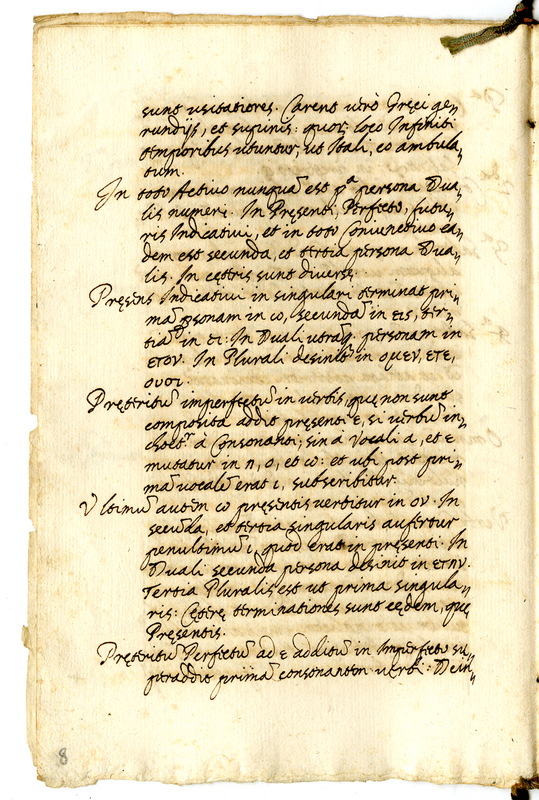 sunt usitatiores. Carent uerò Gręci ge,,
rundijs, et supinis: quor, loco Infiniti
temporibus utuntur, ut Itali, eo ambula,,
tum.
In toto Actiuo nunquā est pᵃ persona Dua,,
lis numeri. In Pręsenti, Perfecto, futu,,
ris Indicatiui, et in toto Coniunctiuo ea,,
dem est secunda, et tertia persona Dua,,
lis. In cęteris sunt diuersę.
Pręsens Indicatiui in singulari terminat pri,,
mā psonam in ω, secundā in εις, ter,,
tiā in ει: In Duali utrāq. personam in
ετον. In Plurali desinit in ομεν, ετε,
ουσι.
Pręteritū imperfectū in uerbis, quę non sunt
composita addit pręsenti ε, si uerbū in,,
choet.ʳ à Consonanti; sin à Vocali α, et ε
mutatur in η, ο, et ω: et ubi post pri,,
mā uocalē erat ι, subscribitur.
Vltimū autem ω pręsentis uertitur in ον. In
secūda, et tertia singularis aufertur
penultimū ι, quod erat in pręsenti. In
Duali secunda persona desinit in ετην.
Tertia Pluralis est ut prima singula,,
ris: Cęterę terminationes sunt eędem, quę
Pręsentis.
Pręteritū Perfectū ad ε additū in Imperfecto su,,
peraddit primā consonantem uerbi: Dein,,
8